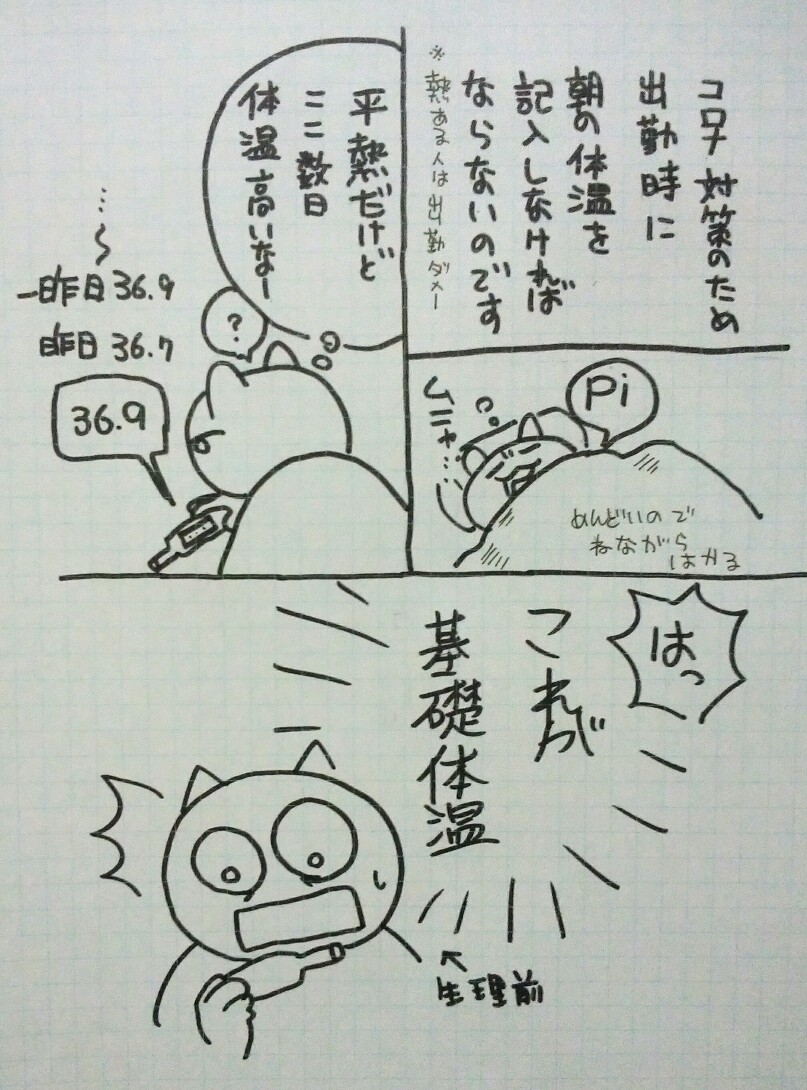 コロナ対策のため
出勤時に
朝の体温を
記入しなければ
ならないのです
※熱ある人は出勤ダメー
Pi
ムニャ…
めんどいので
ねながら
はかる
平熱だけど
ここ数日
体温高いなー
?
36.9
昨日 36.7
一昨日 36.9
〜
…
はっ
これが
基礎体温
↑
生理前